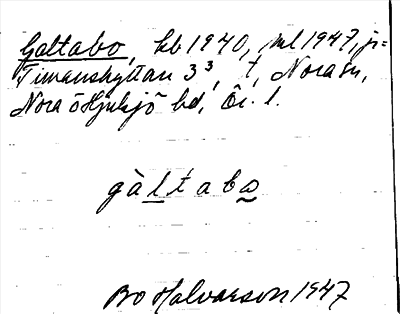 Galtabo, kb 1940, ml 1947, js=
Timanshyttan 3³, t, Nora sn,
Nora o Hjulsjö bd, Ör. l.
gàltabo
Bo Halvarson 1947